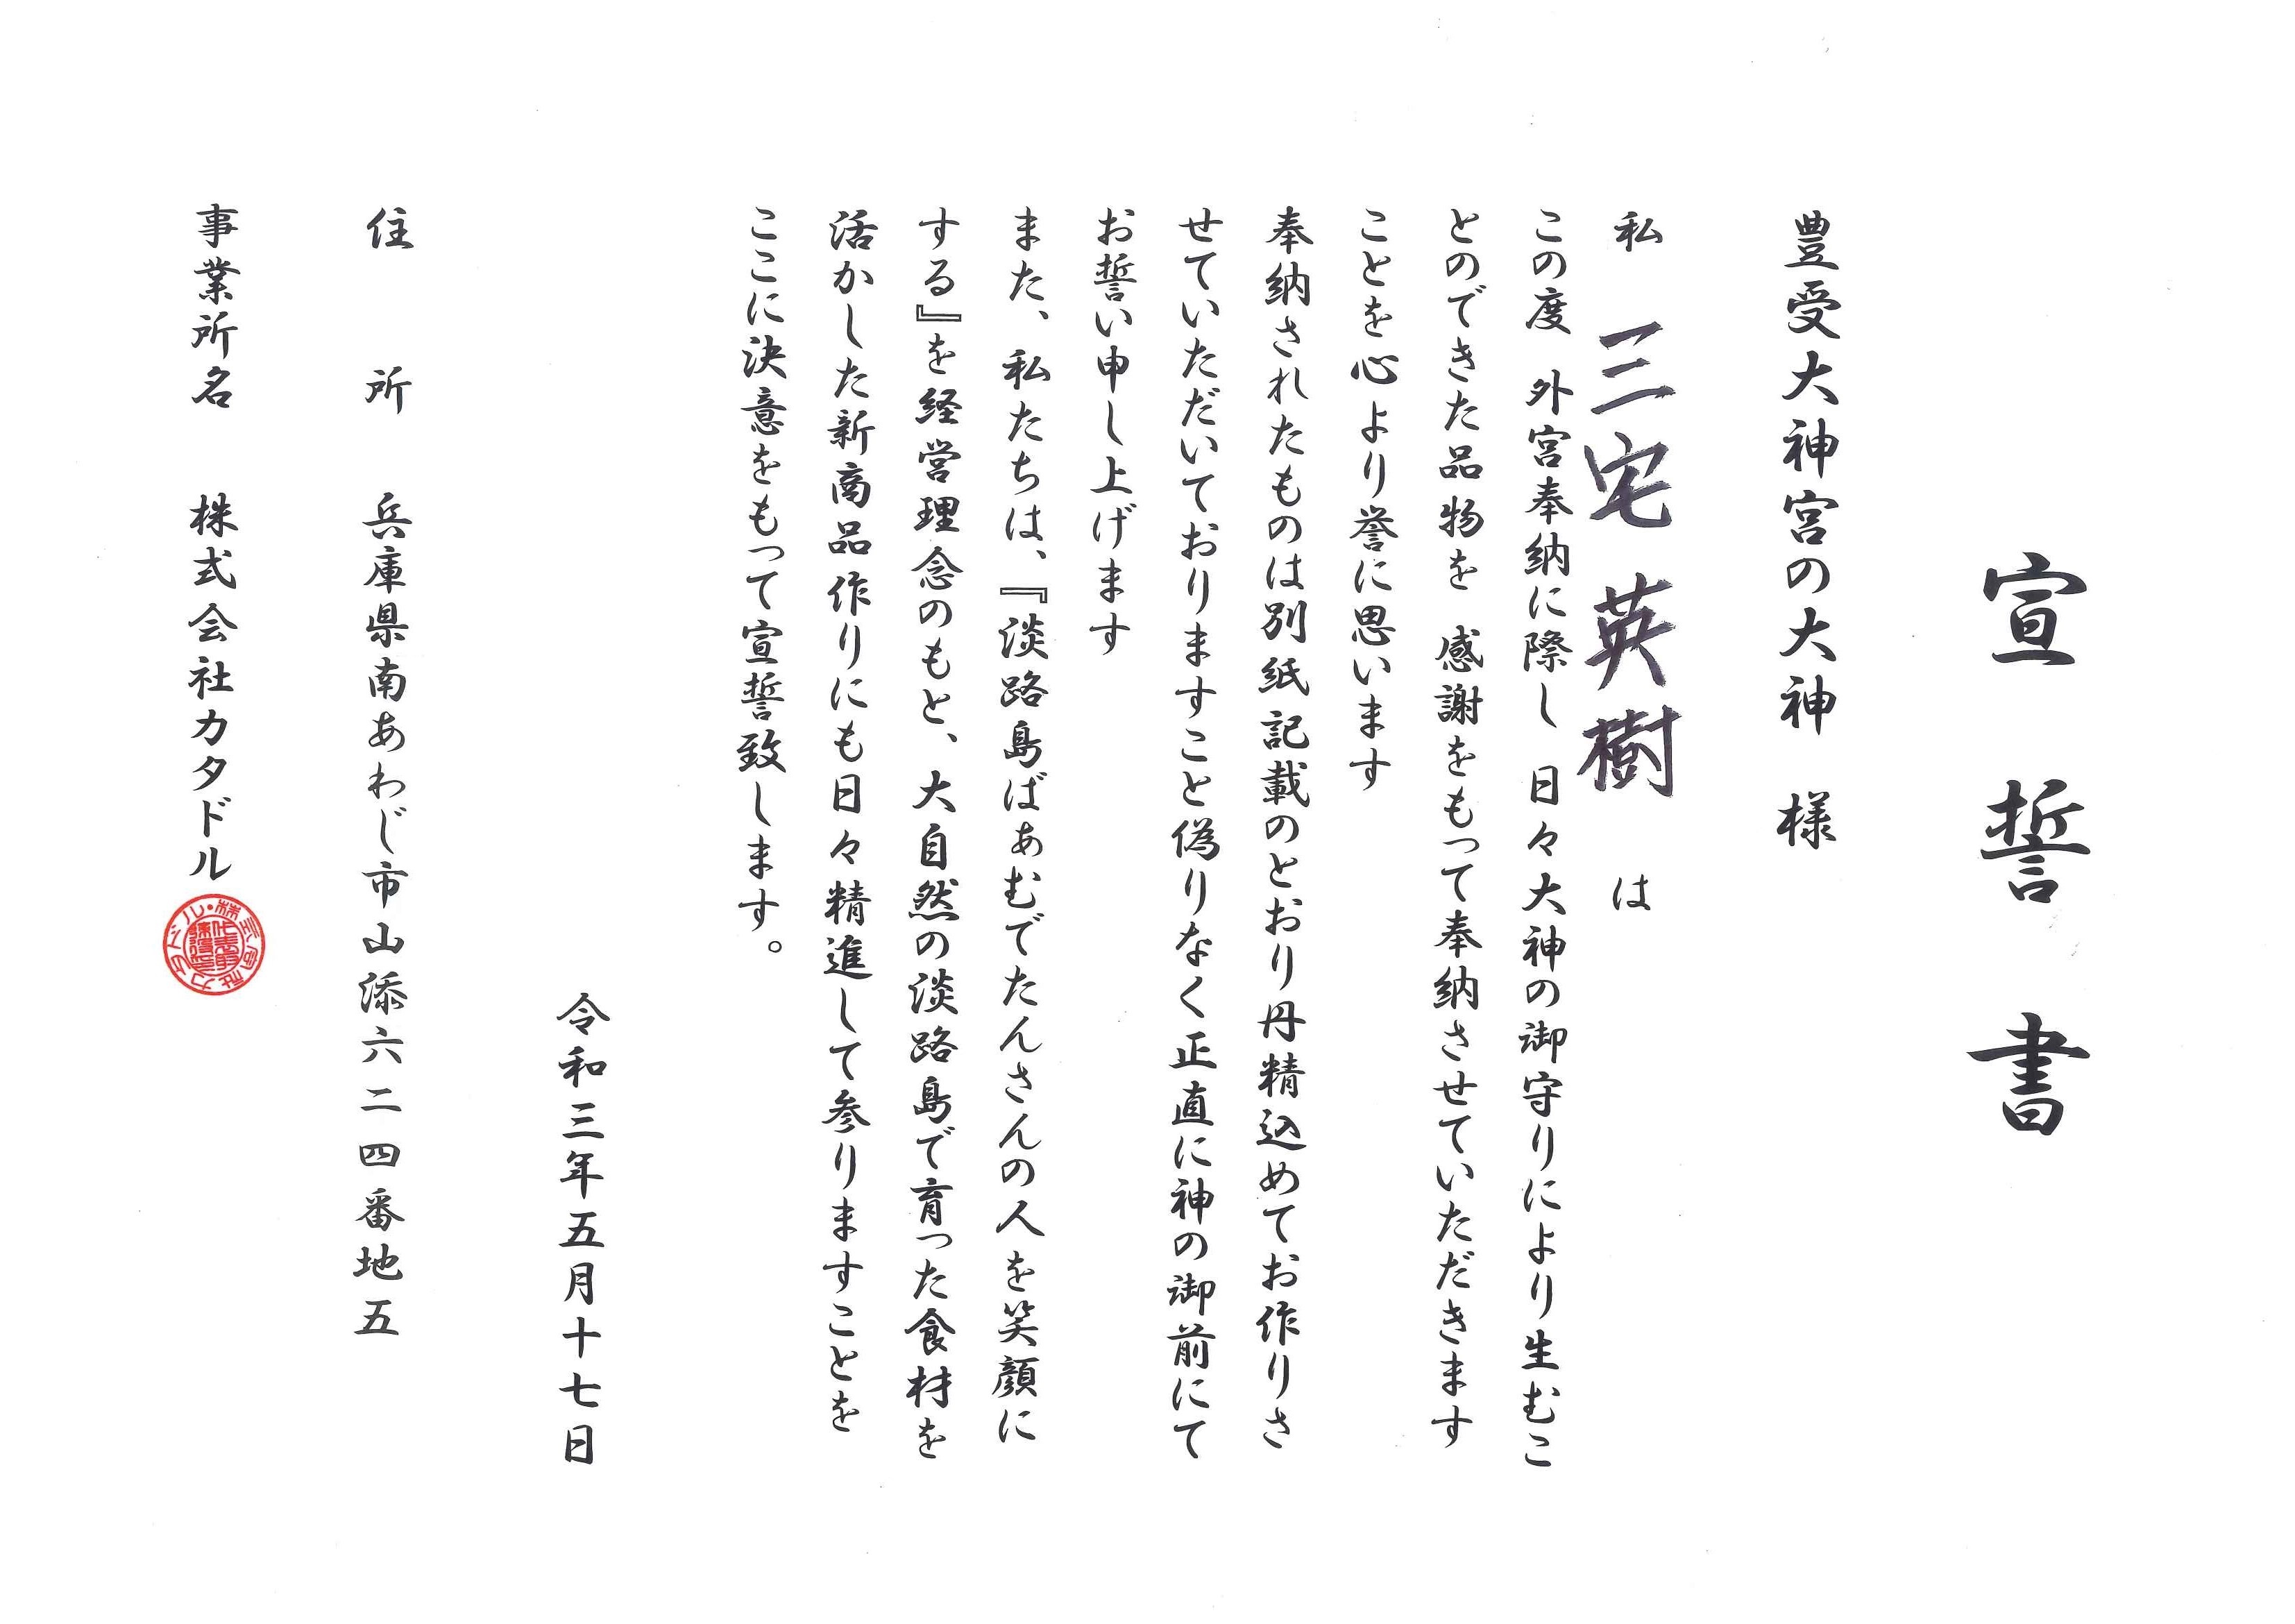 宣誓書
豊受大神宮の大神 様
私 三宅 英樹 は
この度 外宮奉納に際し 日々大神の御守りにより生むこ
とのできた品物を 感謝をもって奉納させていただきます
ことを心より誉に思います
奉納されたものは別紙記載のとおり丹精込めてお作りさ
せていただいておりますこと偽りなく正直に神の御前にて
お誓い申し上げます
また、私たちは、『淡路島ばあむでたんさんの人を笑顔に
する』を経営理念のもと、大自然の淡路島で育った食材を
活かした新商品作りにも日々精進して参りますことを
ここに決意をもって宣誓致します。
令和三年五月十七日
住 所 兵庫県南あわじ市山添六二四番地五
事業所名 株式会社カタドル
株式会社カタドル・